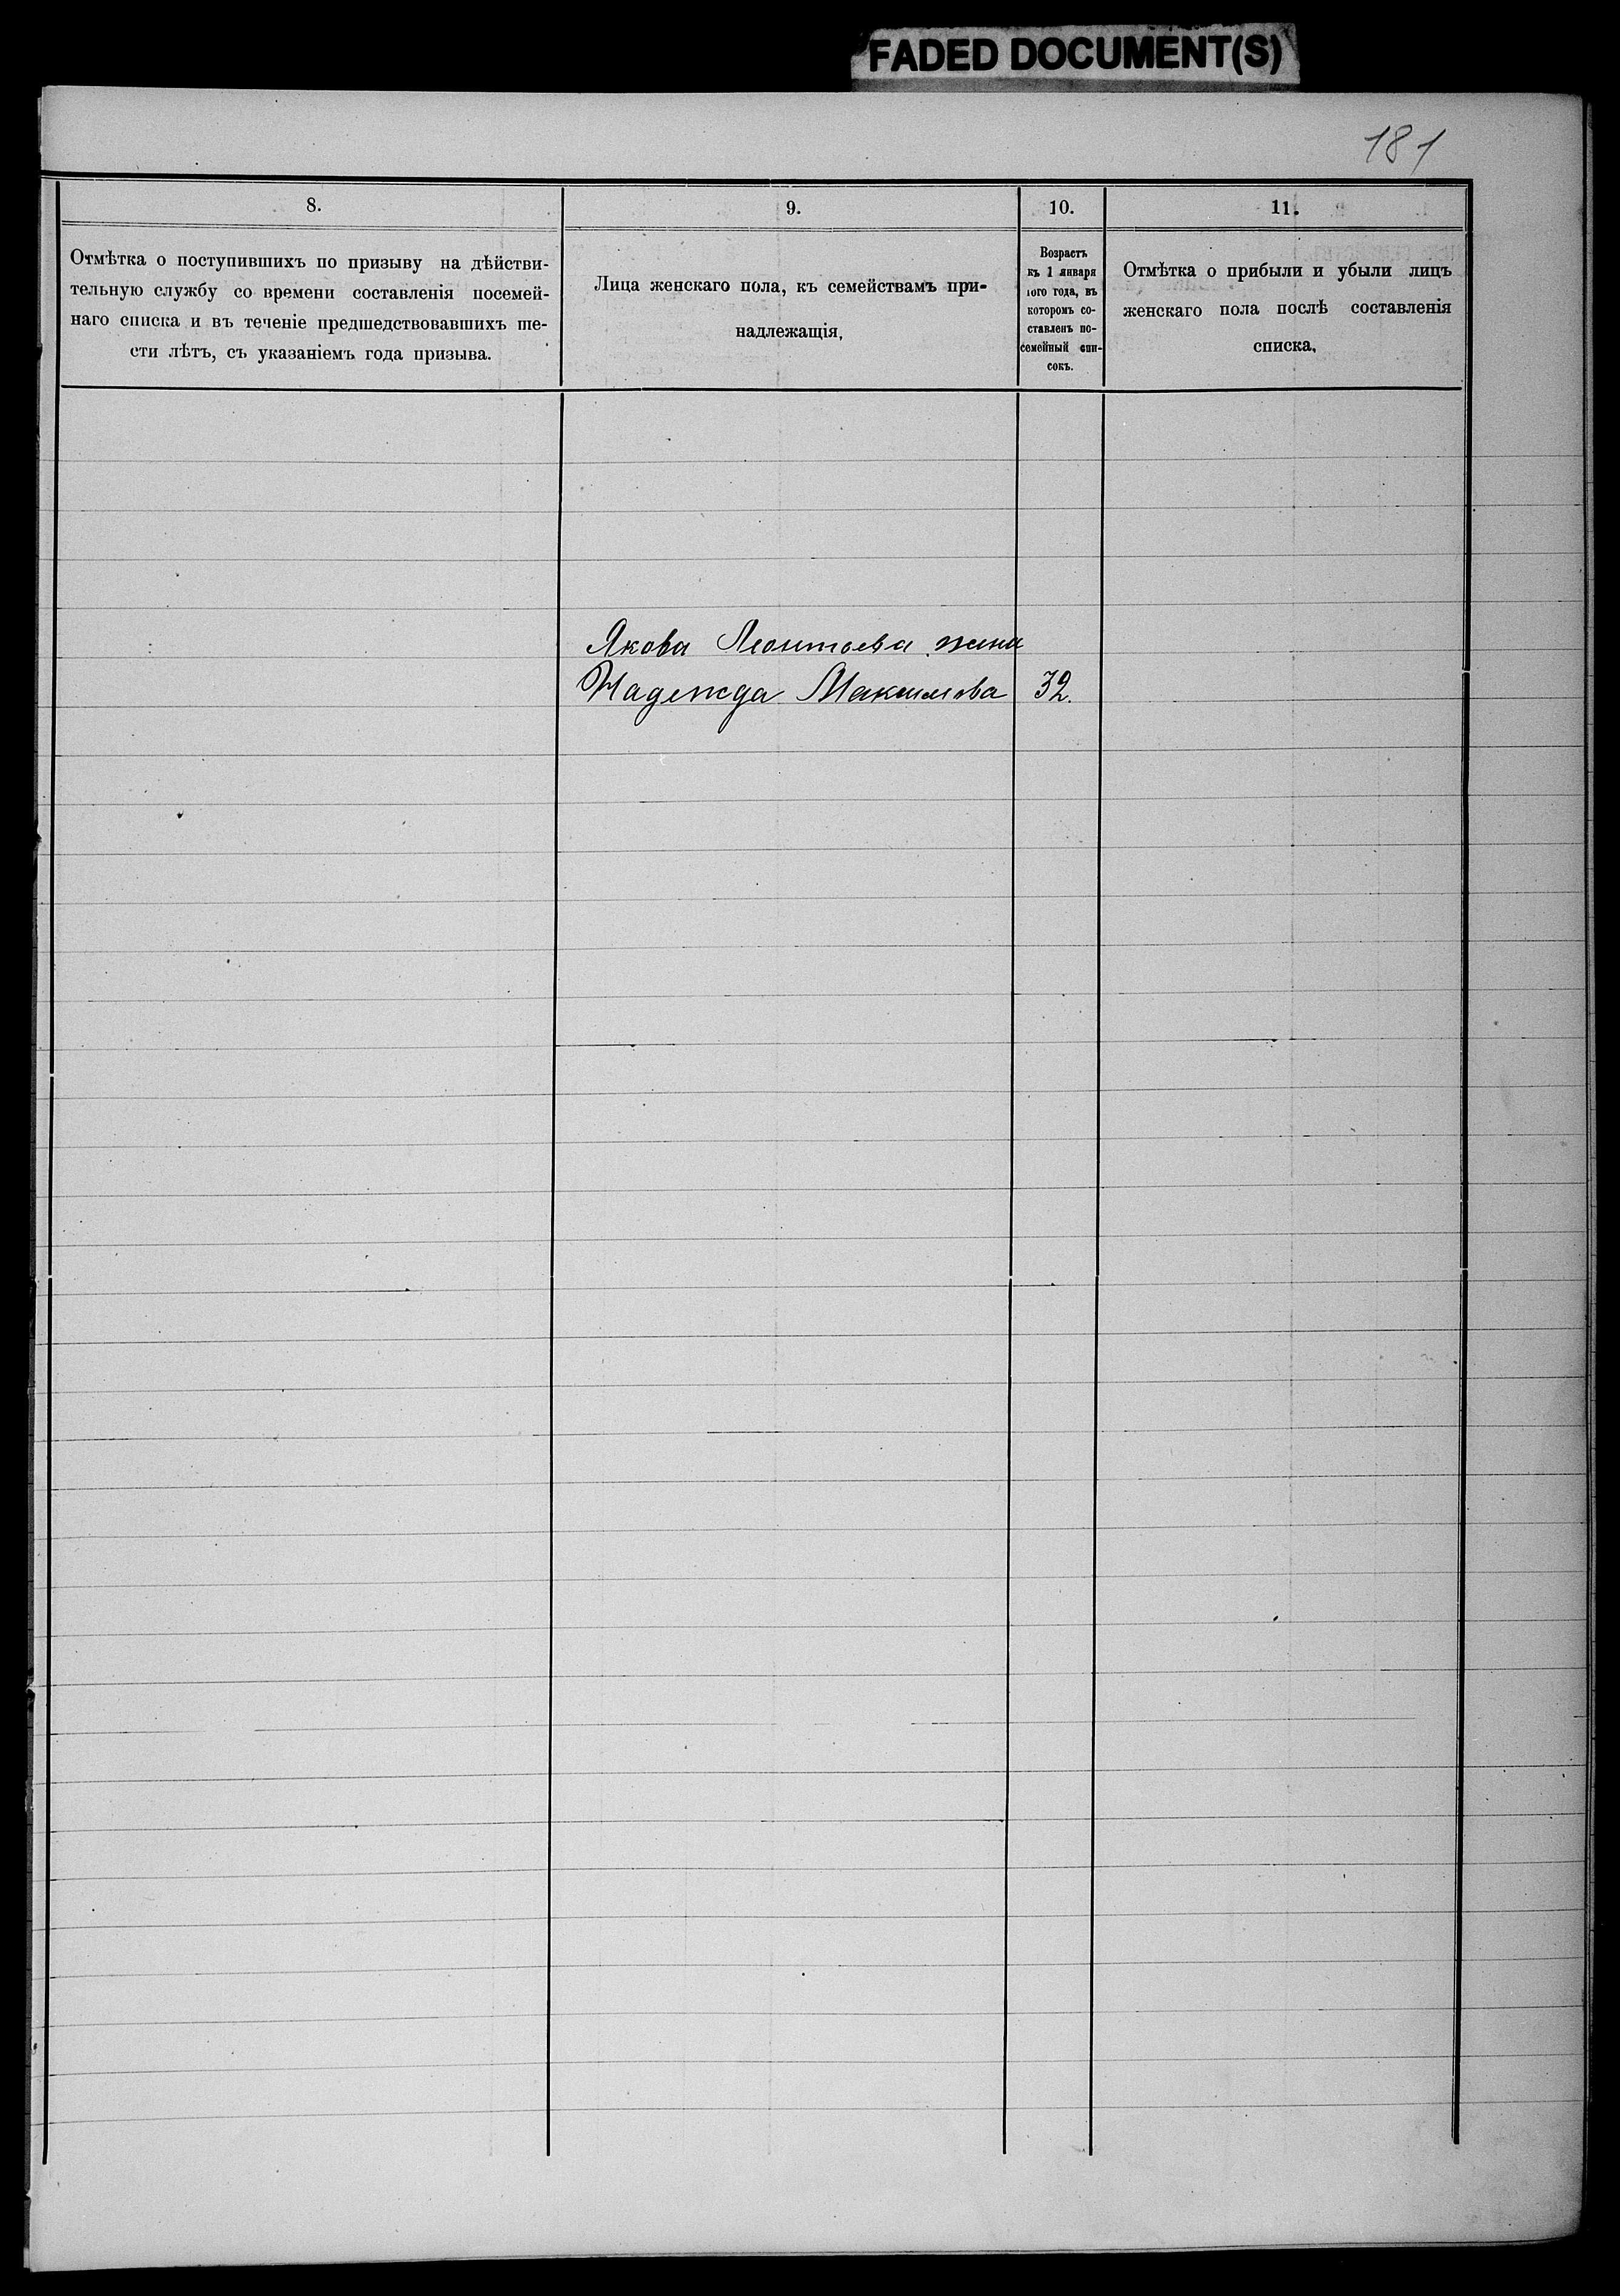 FADED DOCUMENT(S)
181
8.
Отмѣтка о поступившихъ по призыву на дѣйстви-
тельную службу со времени составленія посемей-
наго списка и въ теченіе предшедствовавшихъ ше-
сти лѣтъ, съ указаніемъ года призыва.
9.
Лица женскаго пола, къ семействамъ при-
надлежащія,
10.
Возрастъ
къ 1 января
того года, въ
которомъ со-
ставленъ по-
семейный спи-
сокъ.
11.
Отмѣтка о прибыли и убыли лицъ
женскаго пола послѣ составленія
списка,
Якова Леонтьева жена
Надежда Максимова 32.